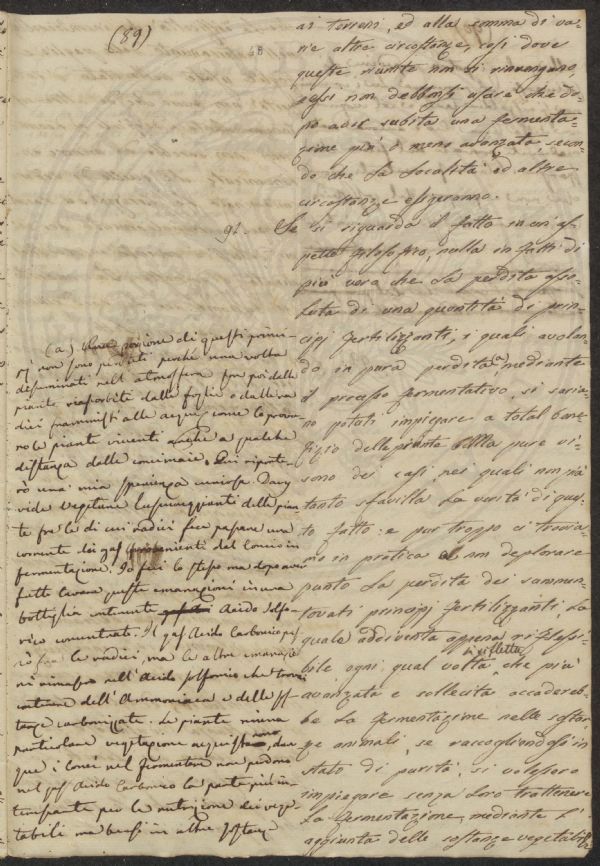 (89)
48
ai terreni, ed alla somma di va-
rie altre circostanze, così dove
queste riunite non si rinvengono,
essi non debbonsi usare che do-
po aver subita una fermenta-
zione più o meno avanzata secon-
do che la località ed altre
circostanze esigeranno.
91. Se si riguarda il fatto in un as-
petto filosofico, nulla in fatti di
più vero che la perdita asso-
luta di una quantità di prin-
cipj fertilizzanti, i quali avolan-
do in pura perdita, mediante
il processo fermentativo, si saria-
no potuti impiegare a total bene-
fizio delle piante. Ma pure vi
sono dei casi, nei quali non già
tanto sfavilla la verità di ques-
to fatto: e pur troppo ci trovia-
mo in pratica a non deplorare
punto la perdita dei sammen-
tovati principj fertilizzanti, la
quale addiventa appena riflessi-
bile ogni qual volta si rifletta che più
avanzata e sollecita accadereb-
be la fermentazione nelle sostan-
ze animali, se raccogliendosi in
stato di purità, si volessero
impiegare senza loro trattenere
la fermentazione, mediante l'
aggiunta delle sostanze vegetabili
(a) porzione di questi princi-
pj non sono perduti perché una volta
disseminati nell'atmosfera son poi dalle
piante riassorbiti dalle foglie o dalle ra-
dici frammisti alle acque, come lo prova-
no le piante viventi anche a qualche
distanza dalle concimaie. Qui riporte-
rò una mia sperienza curiosa. Davy
vide vegetare lussureggianti delle pian-
te fra le di cui radici fece passare una
corrente dei gas provenienti dal concio in
fermentazione. Io feci lo stesso ma dopo aver
fatte lavare queste emanazioni in una
bottiglia contenente Acido Solfo-
rico concentrato. Il gas Acido Carbonico pas-
sò fra le radici, ma le altre emanazio-
ni rimasero nell'Acido solforico che trovai
contenere dell'Ammoniaca e delle sos-
tanze carbonizzate. Le piante niuna
particolare vegetazione acquistarono, dun-
que i conci nel fermentare non perdono
nel gas Acido Carbonico la parte più in-
teressante per la nutrizione dei vege-
tabili ma bensì in altre sostanze